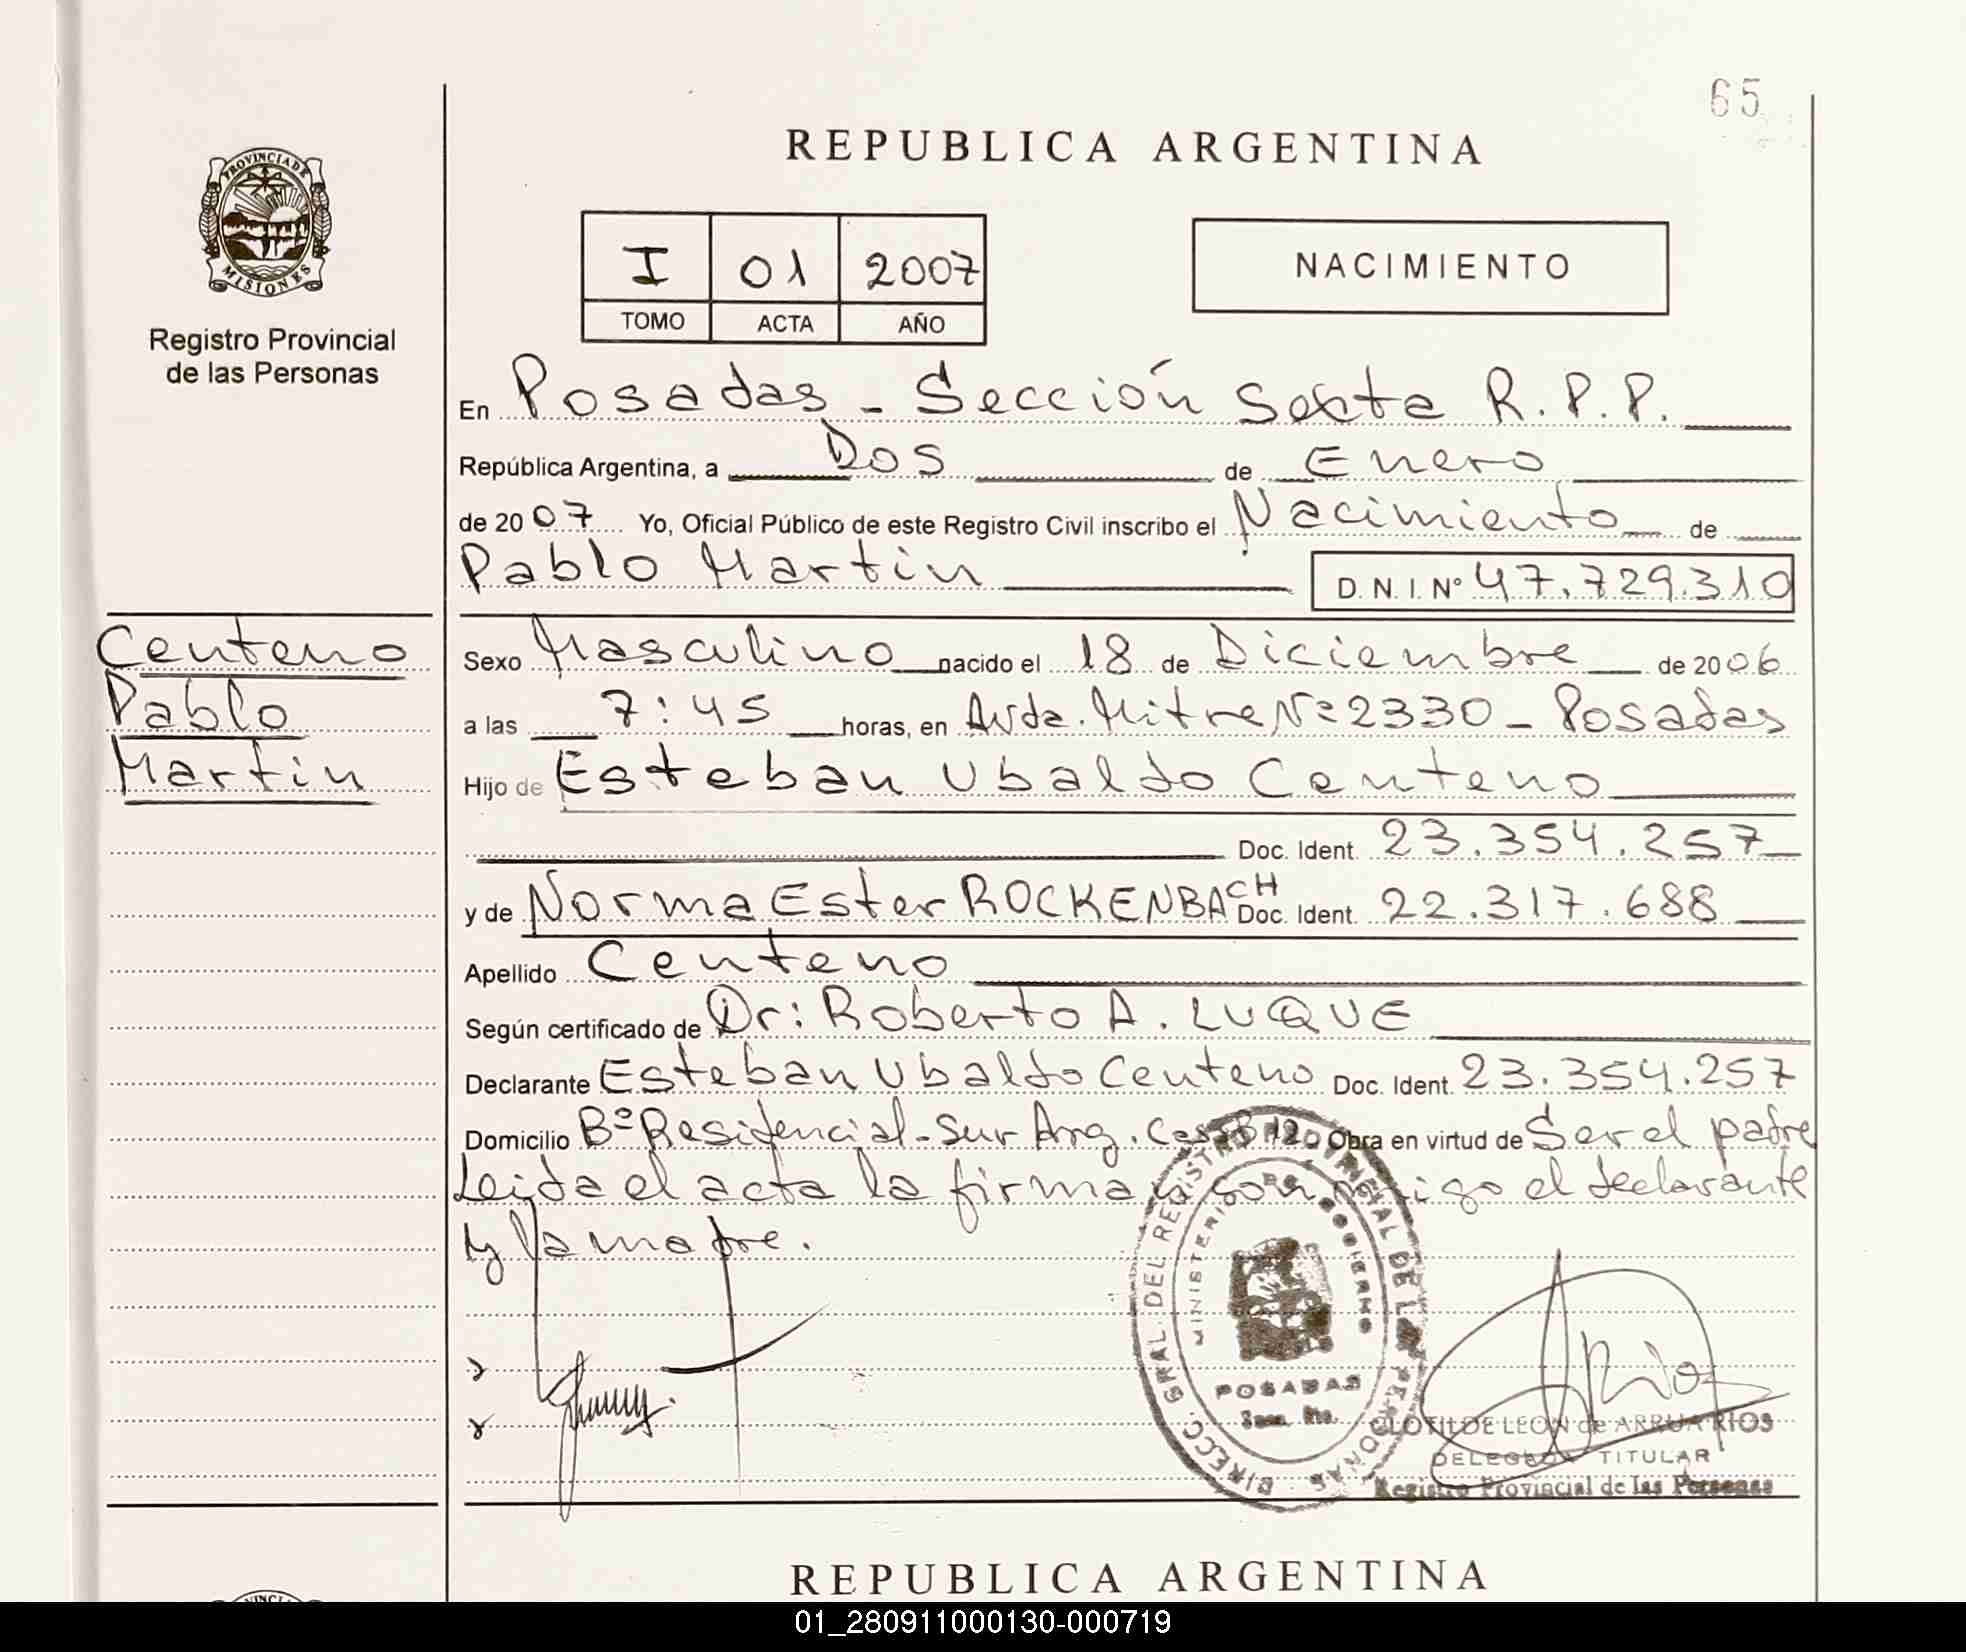 65
REPUBLICA ARGENTINA
PROVINCIA DE
MISIONES
Registro Provincial
de las Personas
I 01 2007
TOMO ACTA AÑO
NACIMIENTO
En Posadas - Sección Sexta R.P.P.
República Argentina, a Dos de Enero
de 2007 Yo, Oficial Público de este Registro Civil inscribo el Nacimiento de
Pablo Martin D.N.I. Nº 47.729.310
Centeno
Pablo
Martin
Sexo Masculino nacido el 18 de Diciembre de 2006
a las 7:45 horas, en Avda. Mitre Nº 2330 - Posadas
Hijo de Esteban Ubaldo Centeno
Doc. Ident. 23.354.257
y de Norma Ester ROCKENBACH Doc. Ident. 22.317.688
Apellido Centeno
Según certificado de Dr: Roberto A. LUQUE
Declarante Esteban Ubaldo Centeno Doc. Ident. 23.354.257
Domicilio Bº Residencial - Sur Arg. 12 Obra en virtud de Ser el padre
Leida el acta la firma el declarante
y la madre.
DIRECC. GRAL. DEL REGISTRO PROVINCIAL DE LAS PERSONAS
MINISTERIO DE GOBIERNO
POSADAS
Rios
CLOTILDE LEON de ARRUA RIOS
DELEGADA TITULAR
Registro Provincial de las Personas
REPUBLICA ARGENTINA
01_280911000130-000719